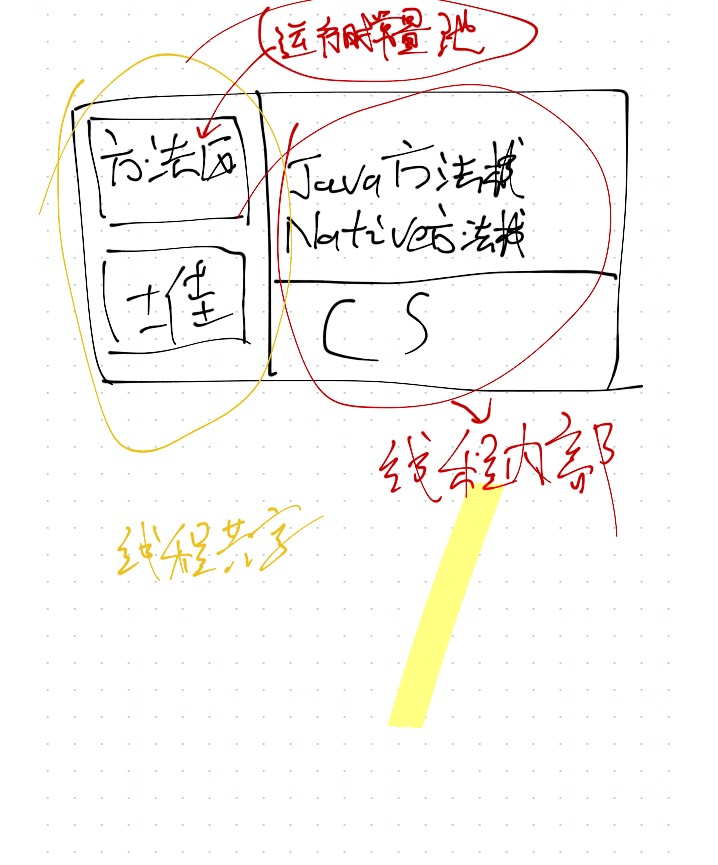 运行时常量池
方法区
Java方法栈
Native方法栈
堆
CS
线程内部
线程共享